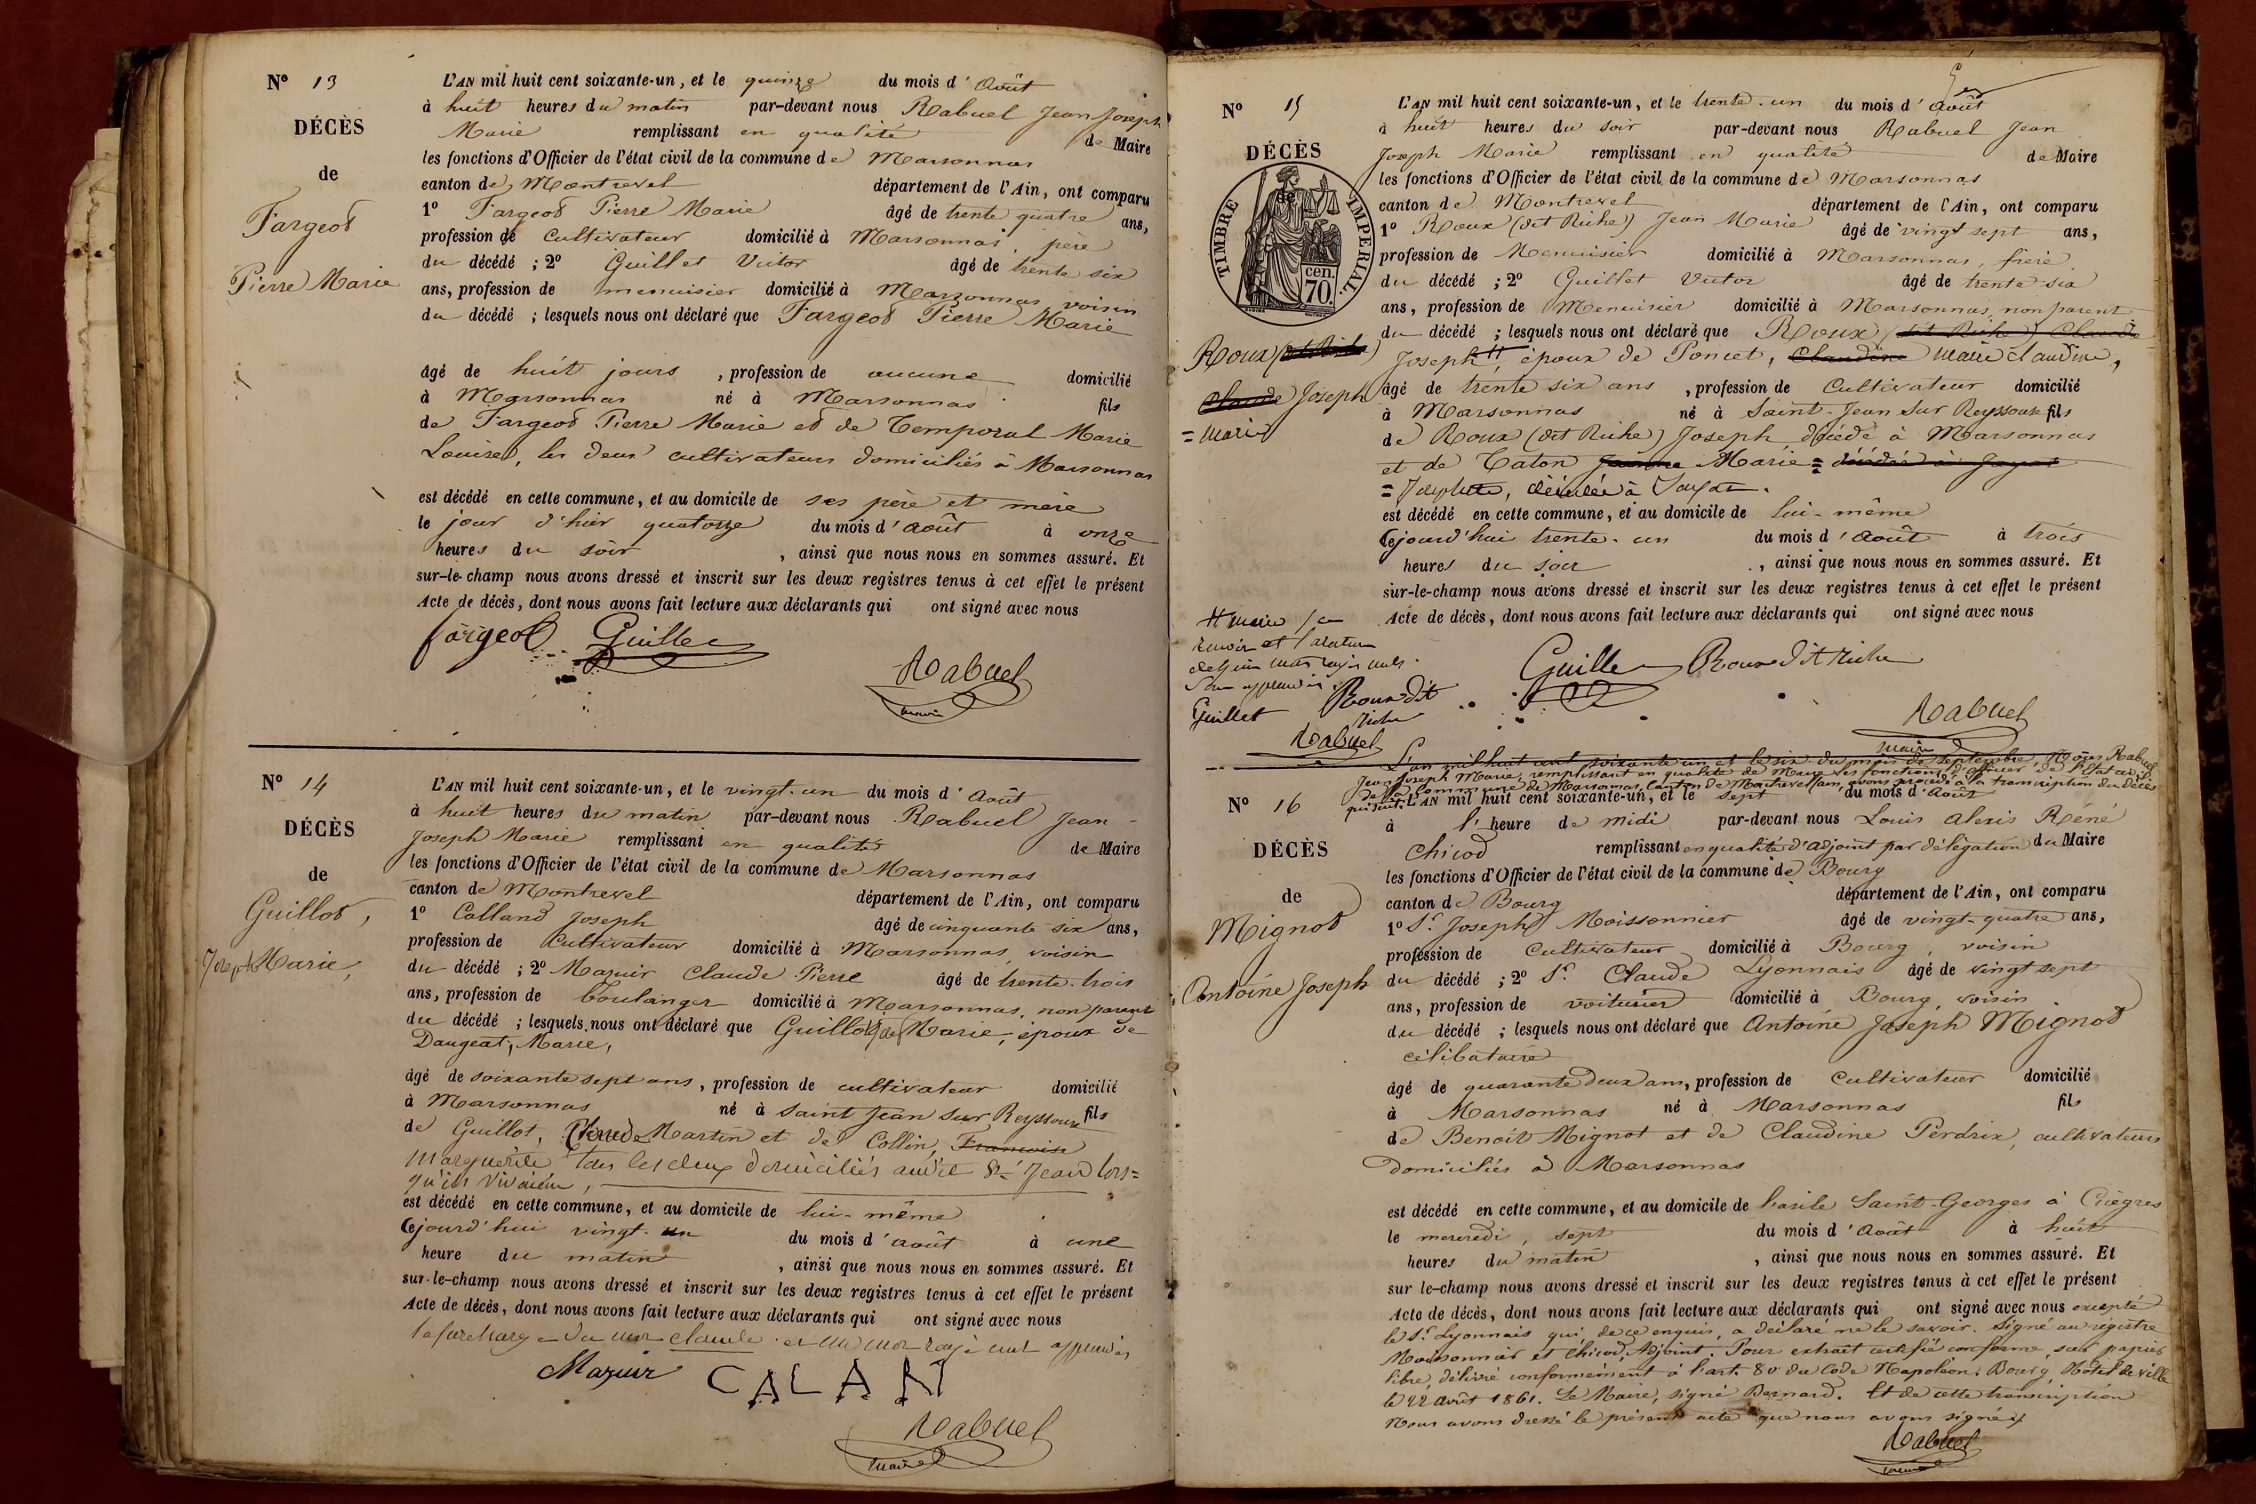 N° 13
DÉCÈS
de
Fargeot
Pierre Marie
L'AN mil huit cent soixante-un, et le quinze du mois d'Août
à huit heures du matin par-devant nous Rabuel Jean Joseph
Marie remplissant en qualité de Maire
les fonctions d'Officier de l'état civil de la commune de Marsonnas
canton de Montrevel département de l'Ain, ont comparu
1° Fargeot Pierre Marie âgé de trente quatre ans,
profession de Cultivateur domicilié à Marsonnas, père
du décédé ; 2° Guillet Victor âgé de trente six
ans, profession de menuisier domicilié à Marsonnas voisin
du décédé ; lesquels nous ont déclaré que Fargeot Pierre Marie
âgé de huit jours, profession de aucune domicilié
à Marsonnas né à Marsonnas fils
de Fargeot Pierre Marie et de Temporal Marie
Louise, les deux cultivateurs domiciliés à Marsonnas
est décédé en cette commune, et au domicile de ses père et mère
le jour d'hier quatorze du mois d'Août à onze
heures du soir, ainsi que nous nous en sommes assuré. Et
sur-le-champ nous avons dressé et inscrit sur les deux registres tenus à cet effet le présent
Acte de décès, dont nous avons fait lecture aux déclarants qui ont signé avec nous
fargeot Guillet
Rabuel
maire
N° 14
DÉCÈS
de
Guillot,
Joseph Marie,
L'AN mil huit cent soixante-un, et le vingt-un du mois d'Août
à huit heures du matin par-devant nous Rabuel Jean-
Joseph Marie remplissant en qualité de Maire
les fonctions d'Officier de l'état civil de la commune de Marsonnas
canton de Montrevel département de l'Ain, ont comparu
1° Calland Joseph âgé de cinquante six ans,
profession de Cultivateur domicilié à Marsonnas, voisin
du décédé ; 2° Mazuir Claude Pierre âgé de trente-trois
ans, profession de boulanger domicilié à Marsonnas, non parent
du décédé ; lesquels nous ont déclaré que Guillot Jph Marie, époux de
Daugeat, Marie,
âgé de soixante sept ans, profession de cultivateur domicilié
à Marsonnas né à Saint Jean sur Reyssouze fils
de Guillot, Claude Martin et de Collin, Francoise
Marguerite tous les deux domiciliés audit St Jean lors=
qu'ils vivaient,
est décédé en cette commune, et au domicile de lui-même
Cejourd'hui vingt-un du mois d'août à une
heure du matin, ainsi que nous nous en sommes assuré. Et
sur-le-champ nous avons dressé et inscrit sur les deux registres tenus à cet effet le présent
Acte de décès, dont nous avons fait lecture aux déclarants qui ont signé avec nous
la surcharge du mot claude et un mot rayé nul approuvés
Mazuir CALAN
Rabuel
maire
N° 15
DÉCÈS
de
TIMBRE IMPERIAL
70 cen.
Roux (dit Riche)
Claude Joseph
= Marie
L'AN mil huit cent soixante-un, et le trente-un du mois d'Août
à huit heures du soir par-devant nous Rabuel Jean
Joseph Marie remplissant en qualité de Maire
les fonctions d'Officier de l'état civil de la commune de Marsonnas
canton de Montrevel département de l'Ain, ont comparu
1° Roux (dit Riche) Jean Marie âgé de vingt sept ans,
profession de Menuisier domicilié à Marsonnas, frère
du décédé ; 2° Guillet Victor âgé de trente six
ans, profession de Menuisier domicilié à Marsonnas, non parent
du décédé ; lesquels nous ont déclaré que Roux (dit Riche) Claude
Joseph #, époux de Poncet, Claudine Marie claudine,
âgé de trente six ans, profession de Cultivateur domicilié
à Marsonnas né à Saint-Jean sur Reyssouze fils
de Roux (dit Riche) Joseph décédé à Marsonnas
et de Caton Jeanne Marie = décédée à Jayat
= Josephte, décédée à Jayat.
est décédé en cette commune, et au domicile de lui-même
Cejourd'hui trente-un du mois d'Août à trois
heures du soir, ainsi que nous nous en sommes assuré. Et
sur-le-champ nous avons dressé et inscrit sur les deux registres tenus à cet effet le présent
Acte de décès, dont nous avons fait lecture aux déclarants qui ont signé avec nous
# Marie
renvoi et la rature
mots rayés nuls
approuvés
Guillet Roux dit
riche
Rabuel
Guillet Roux dit riche
Rabuel
maire
N° 16
DÉCÈS
de
Mignot
Antoine Joseph
L'an mil huit cent soixante un et le six du mois de septembre, Nous Rabuel
Jean Joseph Marie, remplissant en qualité de Maire les fonctions d'officier de l'Etat civil
de la commune de Marsonnas, Canton de Montrevel (ain, avons procédé à la transcription du décès
qui suit: L'AN mil huit cent soixante-un, et le sept du mois d'Août
à l'heure de midi par-devant nous Louis Alexis Réné
Chicod remplissant en qualité d'adjoint par délégation du Maire
les fonctions d'Officier de l'état civil de la commune de Bourg
canton de Bourg département de l'Ain, ont comparu
1° Sr. Joseph Moissonnier âgé de vingt-quatre ans,
profession de Cultivateur domicilié à Bourg, voisin
du décédé ; 2° Sr. Claude Lyonnais âgé de vingt sept
ans, profession de voiturier domicilié à Bourg, voisin
du décédé ; lesquels nous ont déclaré que Antoine Joseph Mignot
célibataire
âgé de quarante deux ans, profession de Cultivateur domicilié
à Marsonnas né à Marsonnas fils
de Benoît Mignot et de Claudine Perdrix, cultivateurs
domiciliés à Marsonnas
est décédé en cette commune, et au domicile de l'asile Saint-Georges à
le mercredi, sept du mois d'Août à huit
heures du matin, ainsi que nous nous en sommes assuré. Et
sur le-champ nous avons dressé et inscrit sur les deux registres tenus à cet effet le présent
Acte de décès, dont nous avons fait lecture aux déclarants qui ont signé avec nous excepté
le Sr. Lyonnais qui, de ce enquis, a déclaré ne le savoir. Signé au registre
Moissonnier et Chicod, Adjoint. Pour extrait certifié conforme, sur papier
libre, délivré conformément à l'art. 80 du Code Napoléon. Bourg, Hôtel de ville
le 22 août 1861. Le Maire, signé Bernard. Et de cette transcription
Nous avons dressé le présent acte que nous avons signé
Rabuel
maire